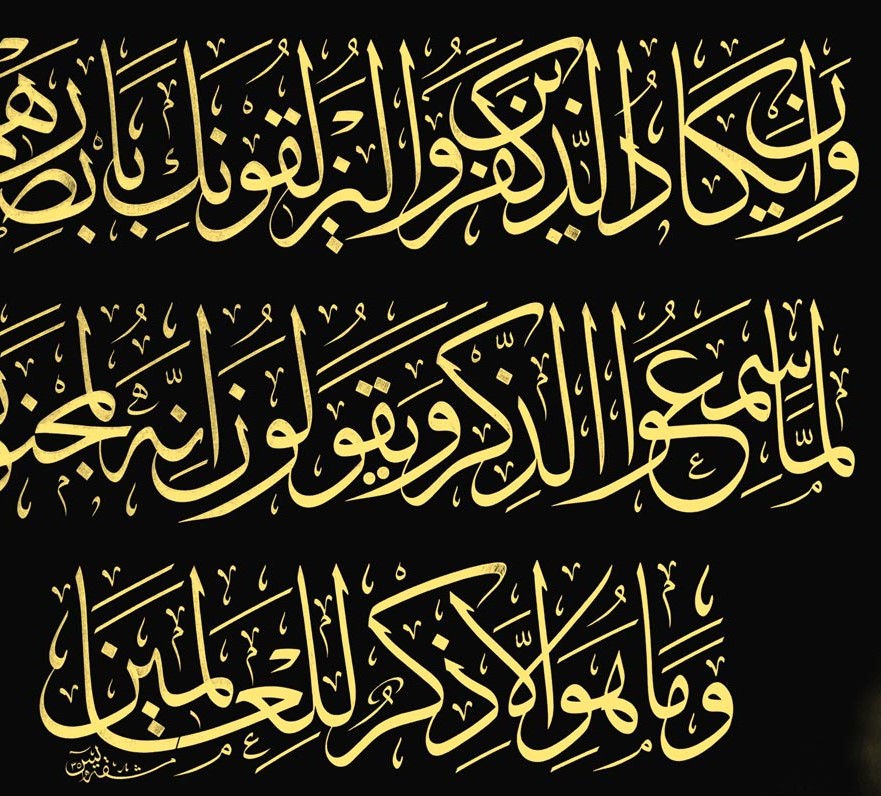 وَإِنْ يَكَادُ الَّذِينَ كَفَرُوا لَيُزْلِقُونَكَ بِأَبْصَارِهِمْ
لَمَّا سَمِعُوا الذِّكْرَ وَيَقُولُونَ إِنَّهُ لَمَجْنُونٌ
وَمَا هُوَ إِلَّا ذِكْرٌ لِلْعَالَمِينَ